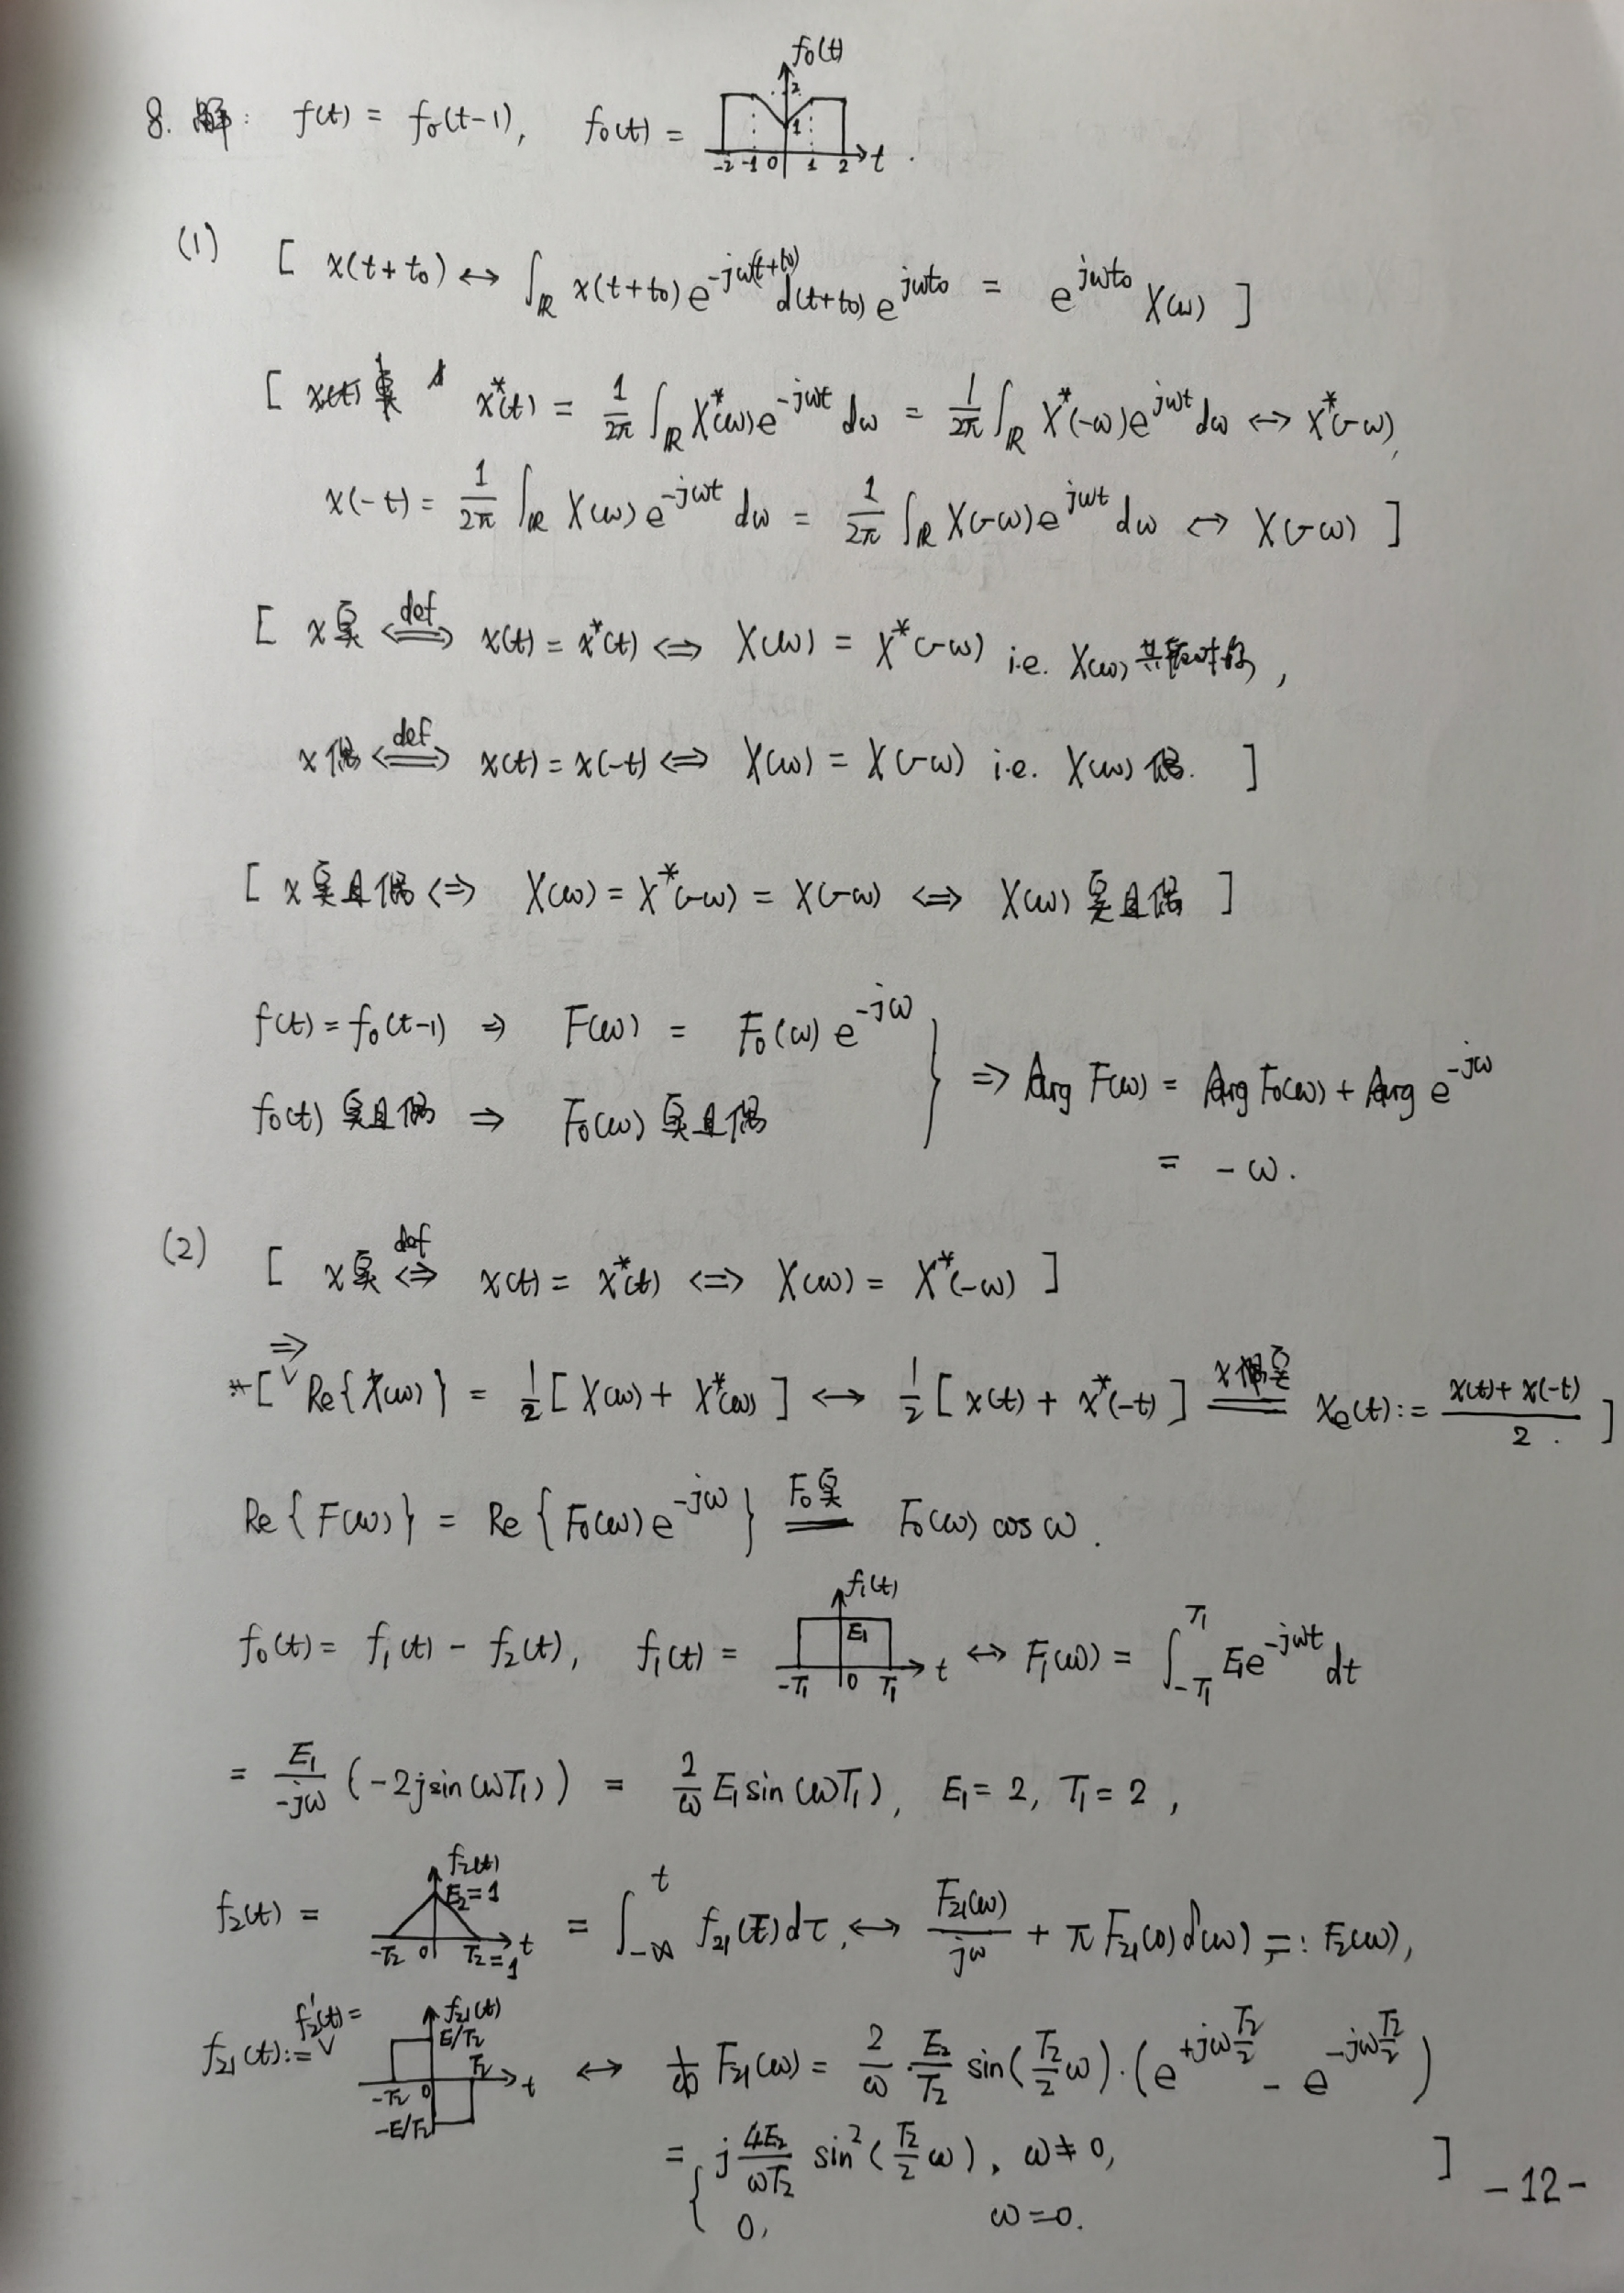 8. 解: f(t) = f₀(t-1), f₀(t) = f₀(t) 2 1 -2 -1 0 1 2 t .
(1) [ x(t+t₀) ↔ ∫_ℝ x(t+t₀) e^{-jω(t+t₀)} d(t+t₀) e^{jωt₀} = e^{jωt₀} X(ω) ]
[ x*(t) = 1/2π ∫_ℝ X*(ω) e^{-jωt} dω = 1/2π ∫_ℝ X*(-ω) e^{jωt} dω ↔ X*(-ω),
x(-t) = 1/2π ∫_ℝ X(ω) e^{-jωt} dω = 1/2π ∫_ℝ X(-ω) e^{jωt} dω ↔ X(-ω) ]
[ x实 ⟺^{def} x(t) = x*(t) ⟺ X(ω) = X*(-ω) i.e. X(ω) 共轭对称,
x偶 ⟺^{def} x(t) = x(-t) ⟺ X(ω) = X(-ω) i.e. X(ω) 偶. ]
[ x实且偶 ⟺ X(ω) = X*(-ω) = X(-ω) ⟺ X(ω) 实且偶 ]
f(t) = f₀(t-1) ⇒ F(ω) = F₀(ω) e^{-jω}
f₀(t) 实且偶 ⇒ F₀(ω) 实且偶
} ⇒ Arg F(ω) = Arg F₀(ω) + Arg e^{-jω}
= -ω.
(2) [ x实 ⟺^{def} x(t) = x*(t) ⟺ X(ω) = X*(-ω) ]
*[ ⇒ Re{X(ω)} = 1/2 [ X(ω) + X*(ω) ] ↔ 1/2 [ x(t) + x*(-t) ] =^{x实} xₑ(t) := (x(t) + x(-t))/2 . ]
Re{F(ω)} = Re{F₀(ω) e^{-jω}} =^{F₀实} F₀(ω) cos ω .
f₀(t) = f₁(t) - f₂(t), f₁(t) = f₁(t) E₁ -T₁ 0 T₁ t ↔ F₁(ω) = ∫_{-T₁}^{T₁} E₁ e^{-jωt} dt
= E₁/(-jω) (-2j sin(ωT₁)) = 2/ω E₁ sin(ωT₁), E₁ = 2, T₁ = 2,
f₂(t) = f₂(t) E₂=1 -T₂ 0 T₂=1 t = ∫_{-∞}^{t} f₂₁(τ) dτ ↔ F₂₁(ω)/jω + π F₂₁(0) δ(ω) =: F₂(ω),
f₂₁(t) := f₂'(t) = f₂₁(t) E/T₂ T₂ -T₂ 0 t -E/T₂ ↔ F₂₁(ω) = 2/ω · E₂/T₂ sin(T₂/2 ω) · (e^{+jω T₂/2} - e^{-jω T₂/2})
= { j 4E₂/ωT₂ sin²(T₂/2 ω), ω ≠ 0, ]
0, ω = 0.
-12-